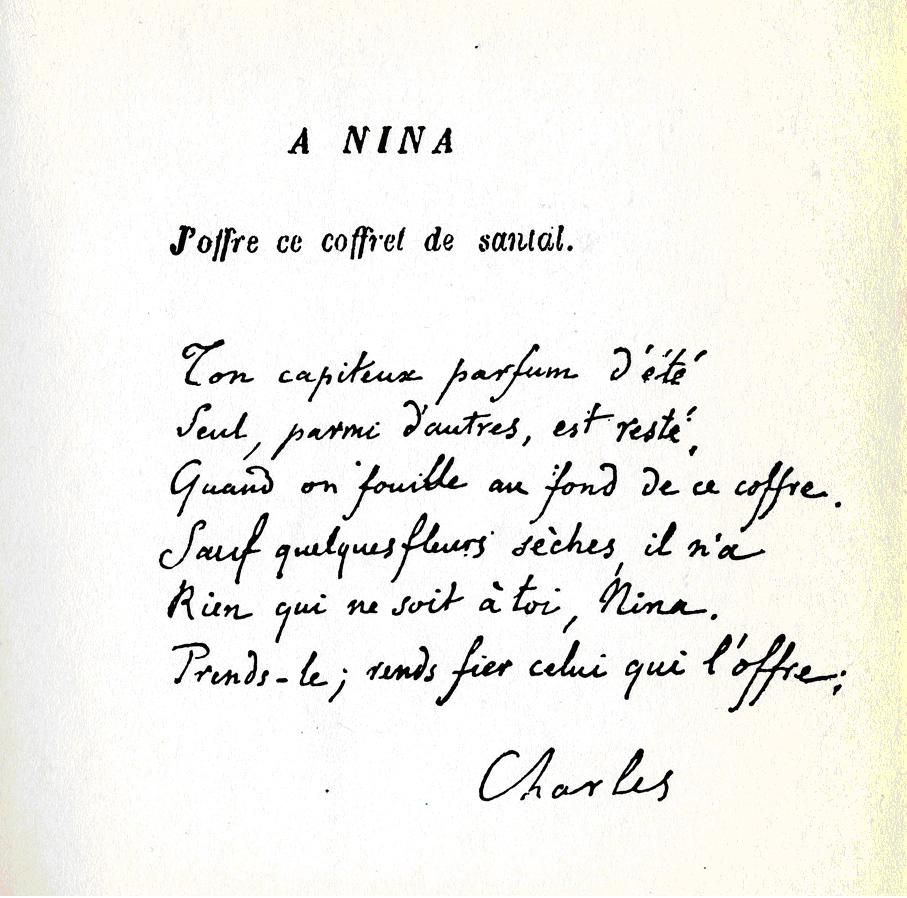 A NINA
J'offre ce coffret de santal.
Ton capiteux parfum d'été
Seul, parmi d'autres, est resté,
Quand on fouille au fond de ce coffre.
Sauf quelques fleurs sèches, il n'a
Rien qui ne soit à toi, Nina.
Prends-le ; rends fier celui qui l'offre ;
Charles